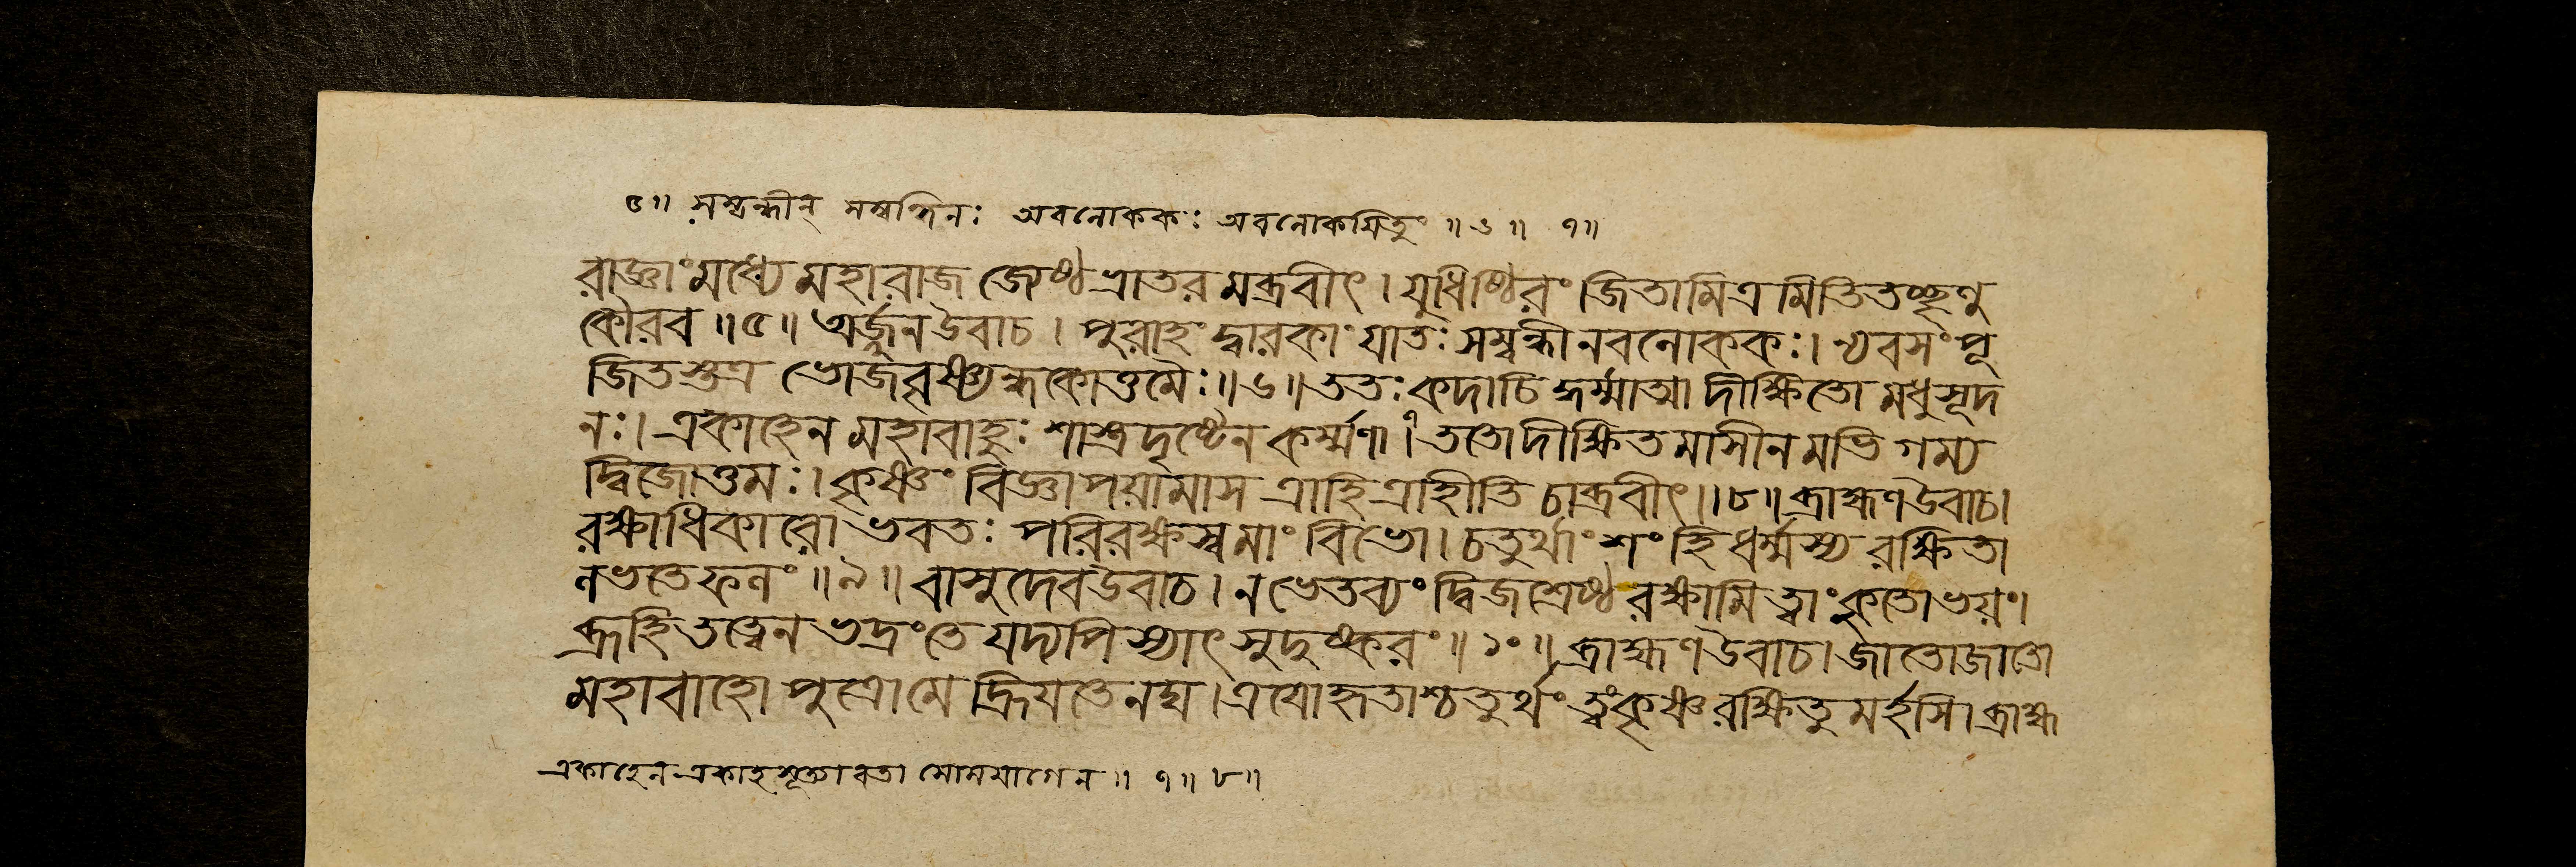 ৫॥ সম্বন্ধীন্ সম্বন্ধিনঃ অবলোককঃ অবলোকয়িতুং ॥ ৬ ॥ ৭॥
রাজ্ঞাং মধ্যে মহারাজ জ্যেষ্ঠভ্রাতরমব্রবীৎ । যুধিষ্ঠিরং জিতামিত্রমিতি তচ্ছৃণু
কৌরব ॥৫॥ অর্জ্জুন উবাচ । পুরাহং দ্বারকাং যাতঃ সম্বন্ধীনবলোককঃ । ন্যবসং পূ
জিতস্তত্র ভোজবৃষ্ণ্যন্ধকোত্তমৈঃ ॥৬॥ ততঃ কদাচিদ্ধর্ম্মাত্মা দীক্ষিতো মধুসূদ
নঃ । একাহেন মহাবাহুঃ শাস্ত্রদৃষ্টেন কর্ম্মণা ।৭ ততো দীক্ষিতমাসীনমভিগম্য
দ্বিজোত্তমঃ । কৃষ্ণং বিজ্ঞাপয়ামাস ত্রাহি ত্রাহীতি চাব্রবীৎ ॥৮॥ ব্রাহ্মণ উবাচ ।
রক্ষাধিকারো ভবতঃ পরিরক্ষস্ব মাং বিভো । চতুর্থাংশং হি ধর্ম্মস্য রক্ষিতা
লভতে ফলং ॥৯॥ বাসুদেব উবাচ । ন ভেতব্যং দ্বিজশ্রেষ্ঠ রক্ষামি ত্বাং কুতো ভয়ং ।
ব্রূহি তত্ত্বেন ভদ্রং তে যদ্যপি স্যাৎ সুদুষ্করং ॥ ১০ ॥ ব্রাহ্মণ উবাচ । জাতো জাতো
মহাবাহো পুত্রো মে হ্রিয়তেনঘ । ত্রয়ো হৃতাশ্চতুর্থং ত্বং কৃষ্ণ রক্ষিতুমর্হসি । ব্রাহ্ম
একাহেন একাহসূত্যাবতা সোমযাগেন ॥ ৭॥ ৮॥